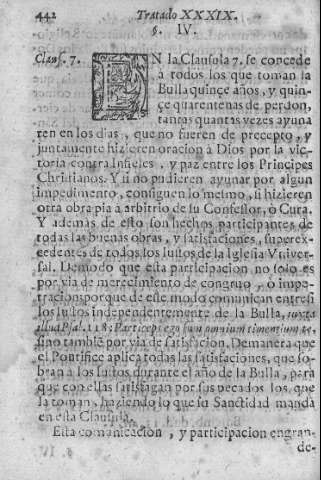 442 Tratado XXXIX.
§. IV.
Clauſ. 7. EN la Clauſula 7. ſe concede
à todos los que toman la
Bulla quinçe años, y quin-
çe quarentenas de perdon,
tantas quantas vezes ayuna
ren en los dias, que no fueren de precepto, y
juntamente hizieren oracion à Dios por la vic-
toria contra Infieles, y paz entre los Principes
Chriſtianos. Y ſi no pudieren ayunar por algun
impedimento, conſiguen lo meſmo, ſi hizieren
otra obra pia à arbitrio de ſu Confeſſor, ò Cura.
Y ademàs de eſto ſon hechos participantes de
todas las buenas obras, y ſatisfaciones, ſuperex-
cedentes de todos los Iuſtos de la Igleſia Vniver-
ſal. De modo que eſta participacion no ſolo es
por via de merecimiento de congruo, ò impe-
tracion; porque de eſte modo comunican entre ſi
los Iuſtos independentemente de la Bulla, iuxta
illud Pſal. 118: Particeps ego ſum omnium timentium te,
ſino tambiẽ por via de ſatisfacion. De manera que
el Pontifice aplica todas las ſatisfaciones, que ſo-
bran à los Iuſtos durante el año de la Bulla, para
que con ellas ſatisfagan por ſus pecados los que
la toman, haziendo lo que ſu Sanctidad manda
en eſta Clauſula.
Eſta comunicacion, y participacion engran-
de-